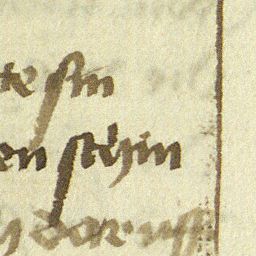 te sin
en stehin
daruff